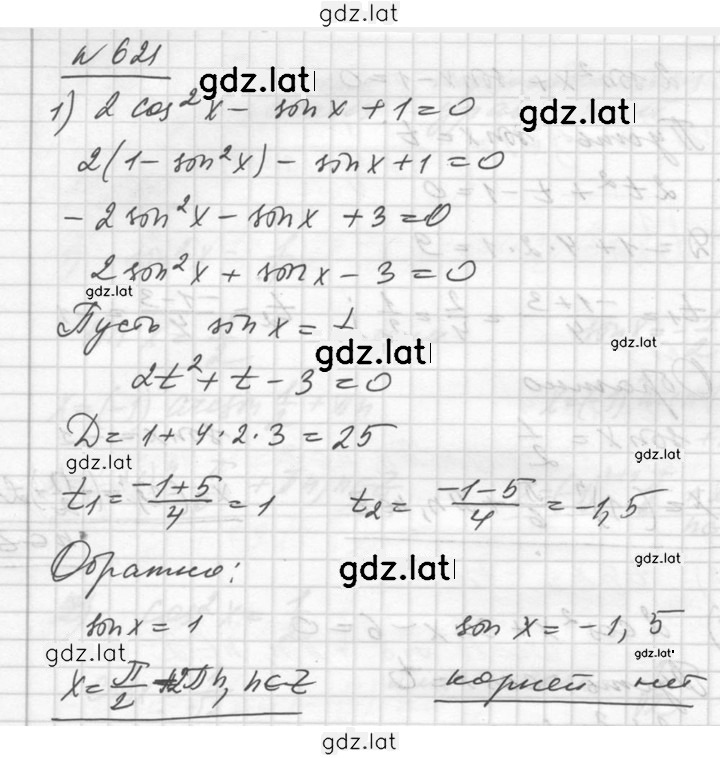 gdz.lat
№ 621
gdz.lat
1) 2 cos²x - sin x + 1 = 0
gdz.lat
2(1 - sin²x) - sin x + 1 = 0
- 2 sin²x - sin x + 3 = 0
2 sin²x + sin x - 3 = 0
gdz.lat
Пусть sin x = t
gdz.lat
gdz.lat
2t² + t - 3 = 0
D = 1 + 4·2·3 = 25
gdz.lat
gdz.lat
t₁ = (-1+5)/4 = 1 t₂ = (-1-5)/4 = -1,5
Обратно:
gdz.lat
gdz.lat
sin x = 1 sin x = -1,5
gdz.lat
gdz.lat
x = П/2 + 2Пn, n∈Z корней нет
gdz.lat